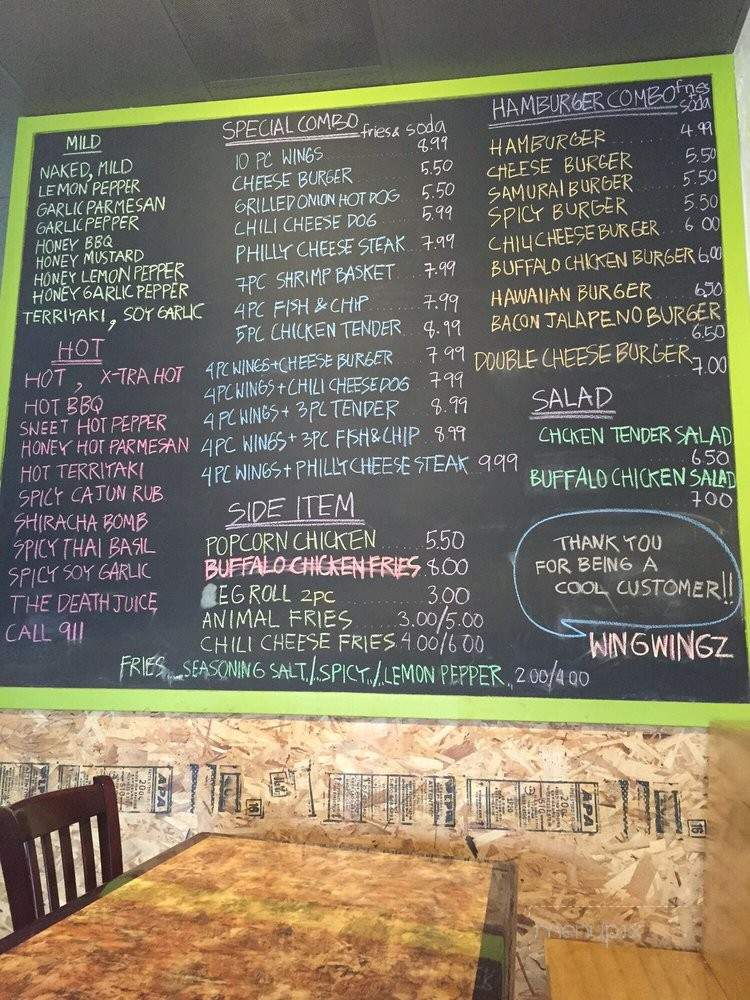 MILD
NAKED, MILD
LEMON PEPPER
GARLIC PARMESAN
GARLIC PEPPER
HONEY BBQ
HONEY MUSTARD
HONEY LEMON PEPPER
HONEY GARLIC PEPPER
TERRIYAKI, SOY GARLIC
HOT
HOT, X-TRA HOT
HOT BBQ
SWEET HOT PEPPER
HONEY HOT PARMESAN
HOT TERRIYAKI
SPICY CAJUN RUB
SHIRACHA BOMB
SPICY THAI BASIL
SPICY SOY GARLIC
THE DEATH JUICE
CALL 911
SPECIAL COMBO fries & soda
10 PC WINGS 8.99
CHEESE BURGER 5.50
GRILLED ONION HOT DOG 5.50
CHILI CHEESE DOG 5.99
PHILLY CHEESE STEAK 7.99
7PC SHRIMP BASKET 7.99
4PC FISH & CHIP 7.99
5PC CHICKEN TENDER 8.99
4PC WINGS+CHEESE BURGER 7 99
4PC WINGS+CHILI CHEESE DOG 7 99
4PC WINGS + 3PC TENDER 8.99
4PC WINGS + 3PC FISH & CHIP 8.99
4PC WINGS + PHILLY CHEESE STEAK 9.99
SIDE ITEM
POPCORN CHICKEN 5.50
BUFFALO CHICKEN FRIES 8.00
EGROLL 2PC 3.00
ANIMAL FRIES 3.00/5.00
CHILI CHEESE FRIES 4.00/6.00
FRIES SEASONING SALT / SPICY / LEMON PEPPER 2.00/4.00
HAMBURGER COMBO fries soda
HAMBURGER 4 99
CHEESE BURGER 5.50
SAMURAI BURGER 5.50
SPICY BURGER 5.50
CHILI CHEESE BURGER 6 00
BUFFALO CHICKEN BURGER 6.00
HAWAIIAN BURGER 6.50
BACON JALAPENO BURGER
6.50
DOUBLE CHEESE BURGER 7.00
SALAD
CHCKEN TENDER SALAD
6.50
BUFFALO CHICKEN SALAD
7.00
THANK YOU
FOR BEING A
COOL CUSTOMER!!
WINGWINGZ
APA
APA
menupix